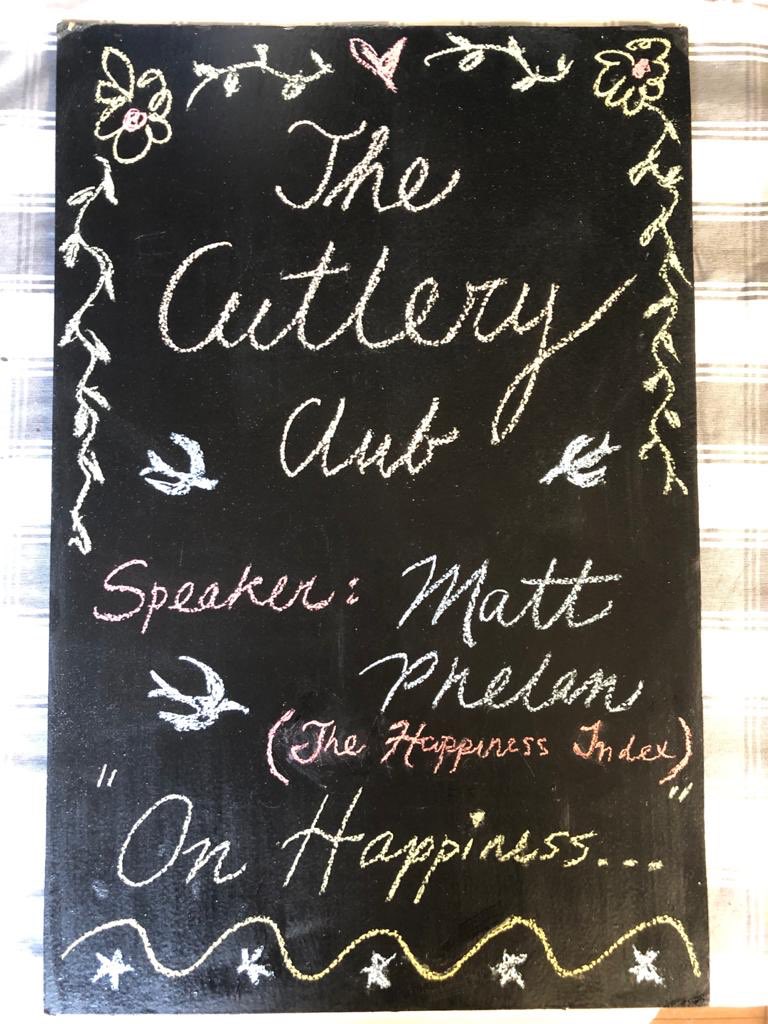 The
Cutlery
Club
Speaker: Matt
Phelan
(The Happiness Index)
"On Happiness..."